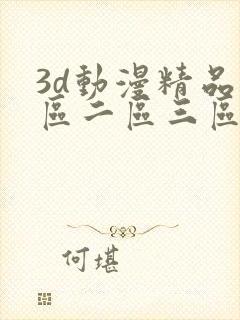 3d動漫精品
區二區三區
何堪